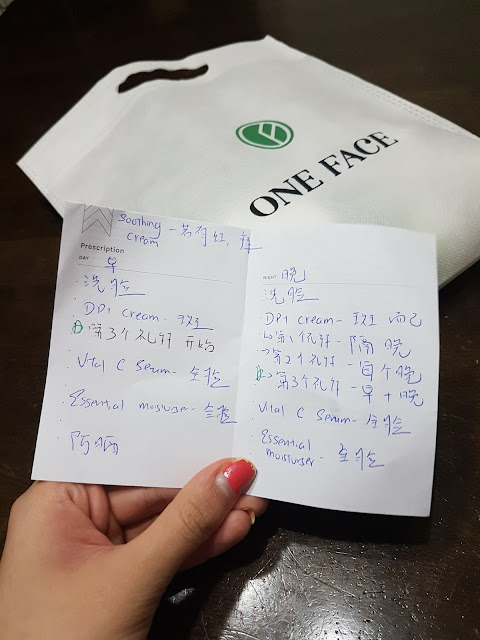 ONE FACE
Soothing - 若有红, 痒
cream
Prescription
DAY 早
洗脸
DP1 cream - 斑
第3个礼拜 开始
Vital C Serum - 全脸
Essential moisturser - 全脸
防晒
NIGHT 晚
洗脸
DP1 cream - 斑 而已
→ 第1个礼拜 - 隔晚
→ 第2个礼拜 - 每个晚
→ 第3个礼拜 - 早+晚
Vital C Serum - 全脸
Essential
moisturser - 全脸